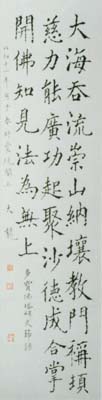 大海吞流崇山納壤教門稱頓
慈力能廣功起聚沙德成合掌
開佛知見法為無上
多寶佛塔碑文節